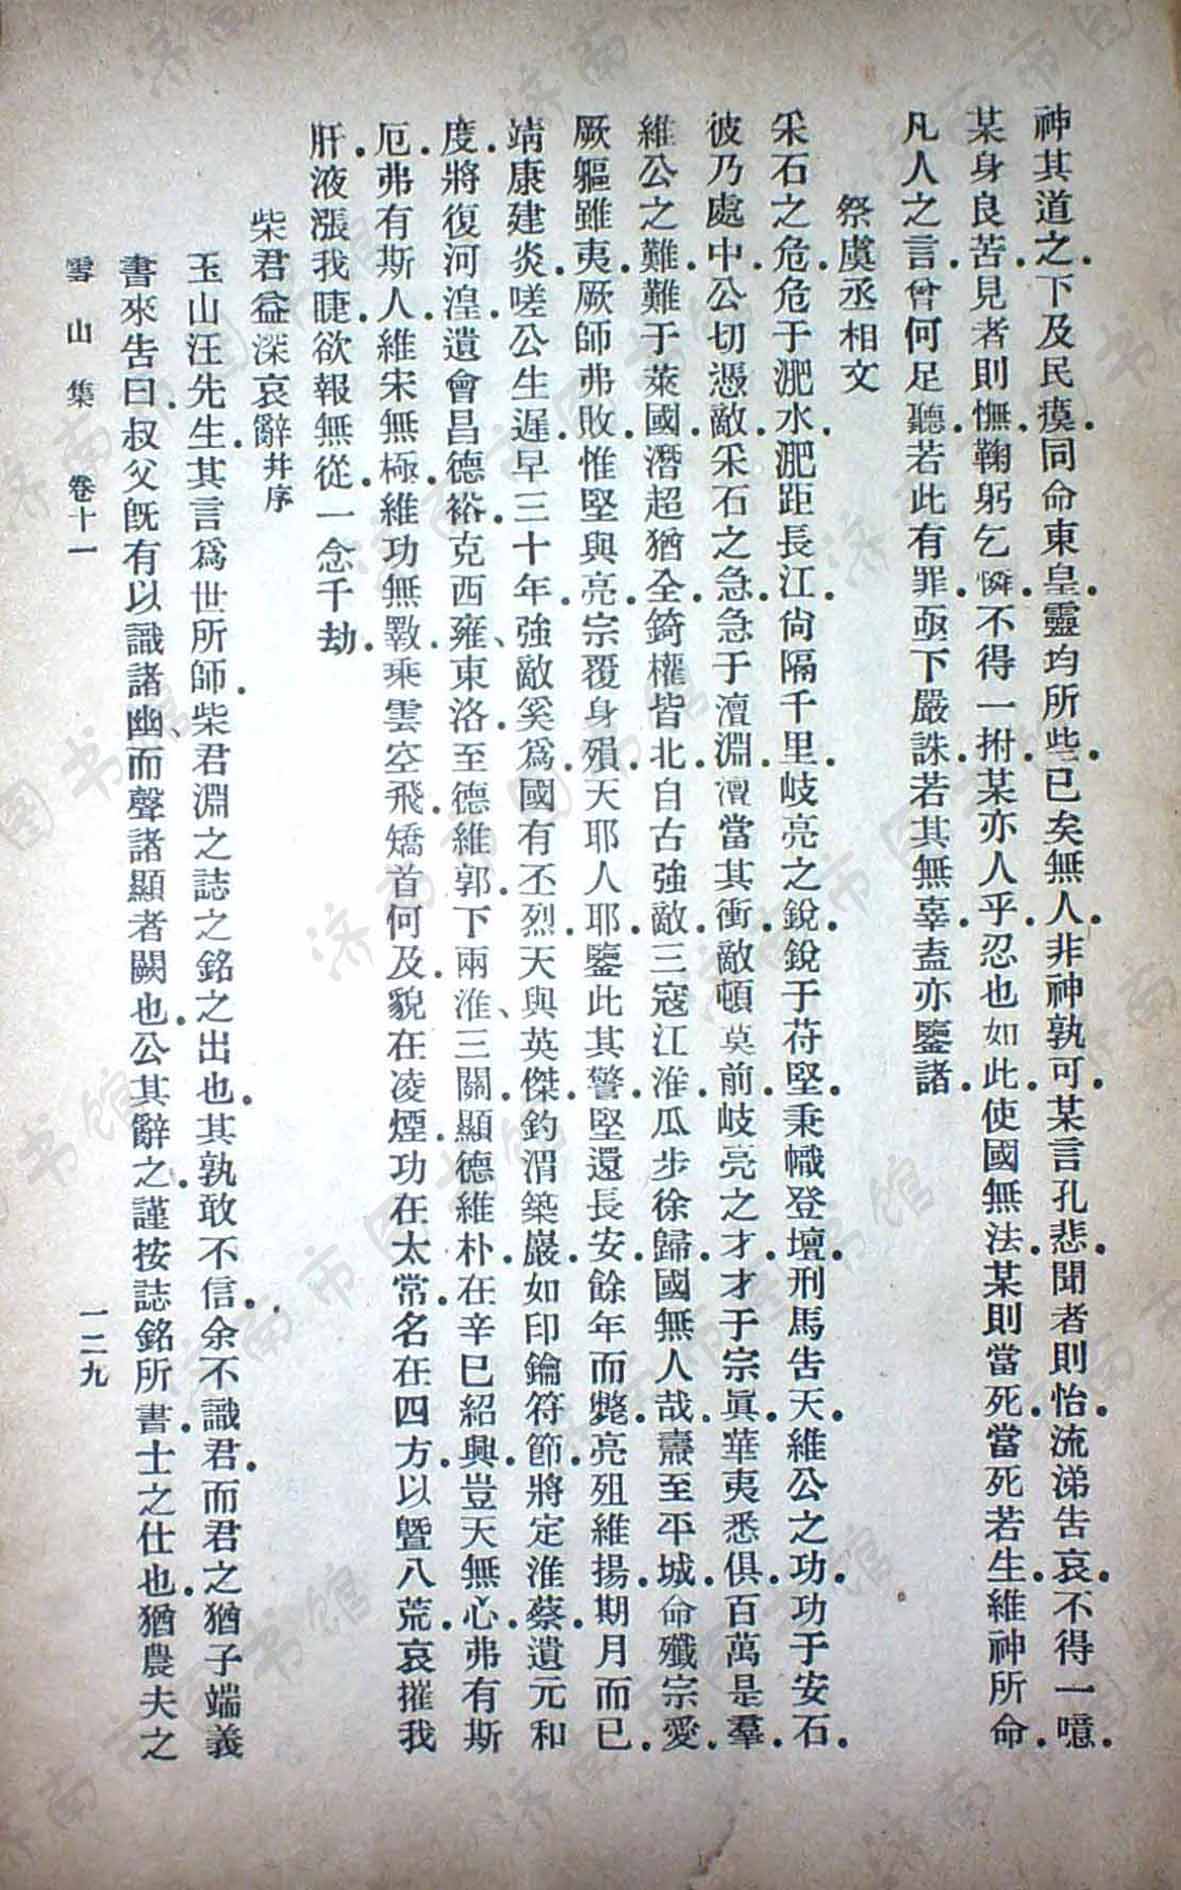 神其道之下及民瘼同命東皇靈均所些已矣無人非神孰可某言孔悲聞者則怡流涕吿哀不得一噫
某身良苦見者則憮鞠躬乞憐不得一拊某亦人乎忍也如此使國無法某則當死當死若生維神所命
凡人之言曾何足聽若此有罪亟下嚴誅若其無辜盍亦鑒諸
祭虞丞相文
采石之危危于淝水淝距長江尙隔千里岐亮之銳銳于苻堅秉幟登壇刑馬吿天維公之功功于安石
彼乃處中公切憑敵采石之急急于澶淵澶當其衝敵頓莫前岐亮之才才于宗眞華夷悉俱百萬是羣
維公之難難于萊國潛超猶全錡權皆北自古強敵三寇江淮瓜步徐歸國無人哉燾至平城命殲宗愛
厥軀雖夷厥師弗敗惟堅與亮宗覆身殞天耶人耶鑒此其警堅還長安餘年而斃亮殂維揚期月而已
靖康建炎嗟公生遲早三十年強敵奚爲國有丕烈天與英傑釣渭築巖如印鑰符節將定淮蔡遺元和
度將復河湟遺會昌德裕克西雍、東洛至德維郭下兩淮、三關顯德維朴在辛巳紹興豈天無心弗有斯
厄弗有斯人維宋無極維功無斁乘雲空飛矯首何及貌在凌煙功在太常名在四方以曁八荒哀摧我
肝液漲我睫欲報無從一念千劫
柴君益深哀辭幷序
玉山汪先生其言爲世所師柴君淵之誌之銘之出也其孰敢不信余不識君而君之猶子端義
書來吿曰叔父旣有以識諸幽、而聲諸顯者闕也公其辭之謹按誌銘所書士之仕也猶農夫之
雪山集 卷十一 一二九